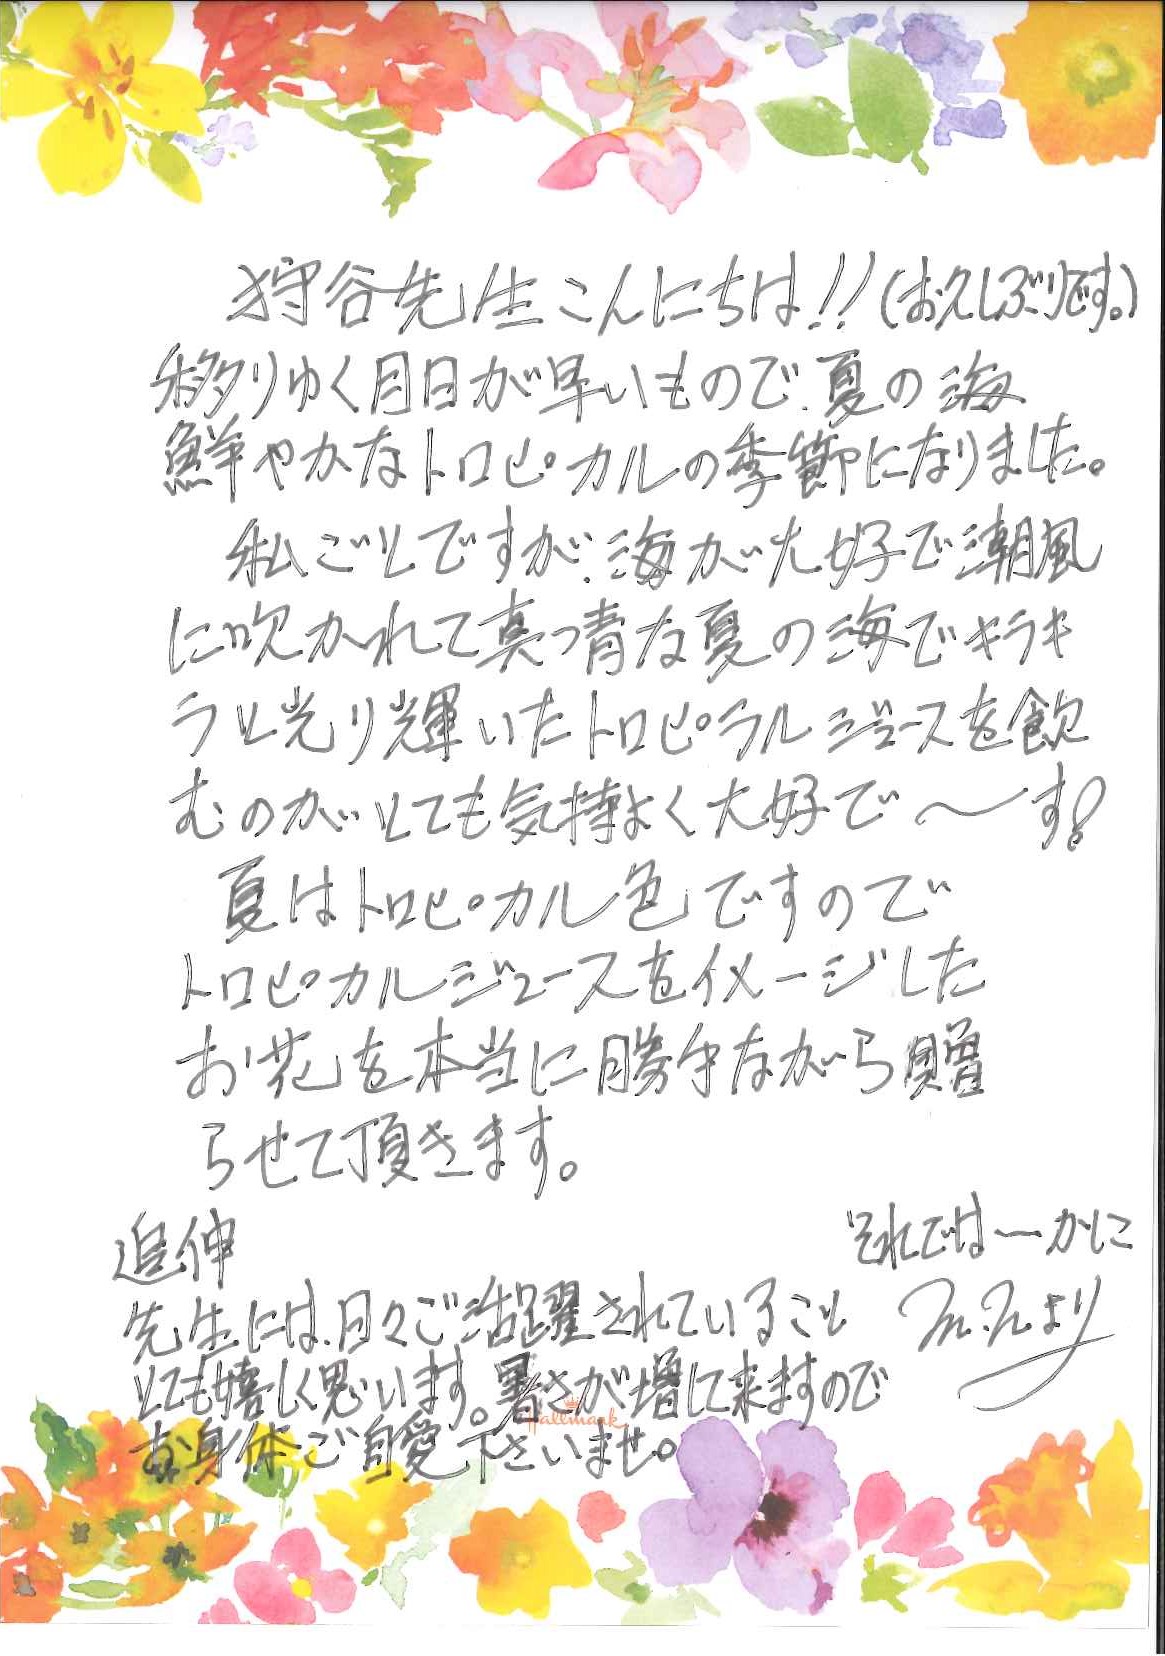 狩谷先生こんにちは!!(お久しぶりです。)
移りゆく月日が早いもので、夏の海
鮮やかなトロピカルの季節になりました。
私ごとですが、海が大好で潮風
に吹かれて真っ青な夏の海でキラキ
ラと光り輝いたトロピラルジュースを飲
むのがとても気持よく大好で〜す!
夏はトロピカル色ですので
トロピカルジュースをイメージした
お花を本当に勝手ながら贈
らせて頂きます。
それでは〜かに
より
追伸
先生には、日々ご活躍されていること
とても嬉しく思います。暑さが増して来ますので
お身体ご自愛下さいませ。
Hallmark